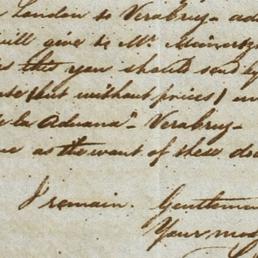 London to Verabruz - ad
will give to Mr. Meinertz
this you should send by
that without prices)
de la Aduana" - Verabruz -
as the want of these do
I remain. Gentlemen
Your mos